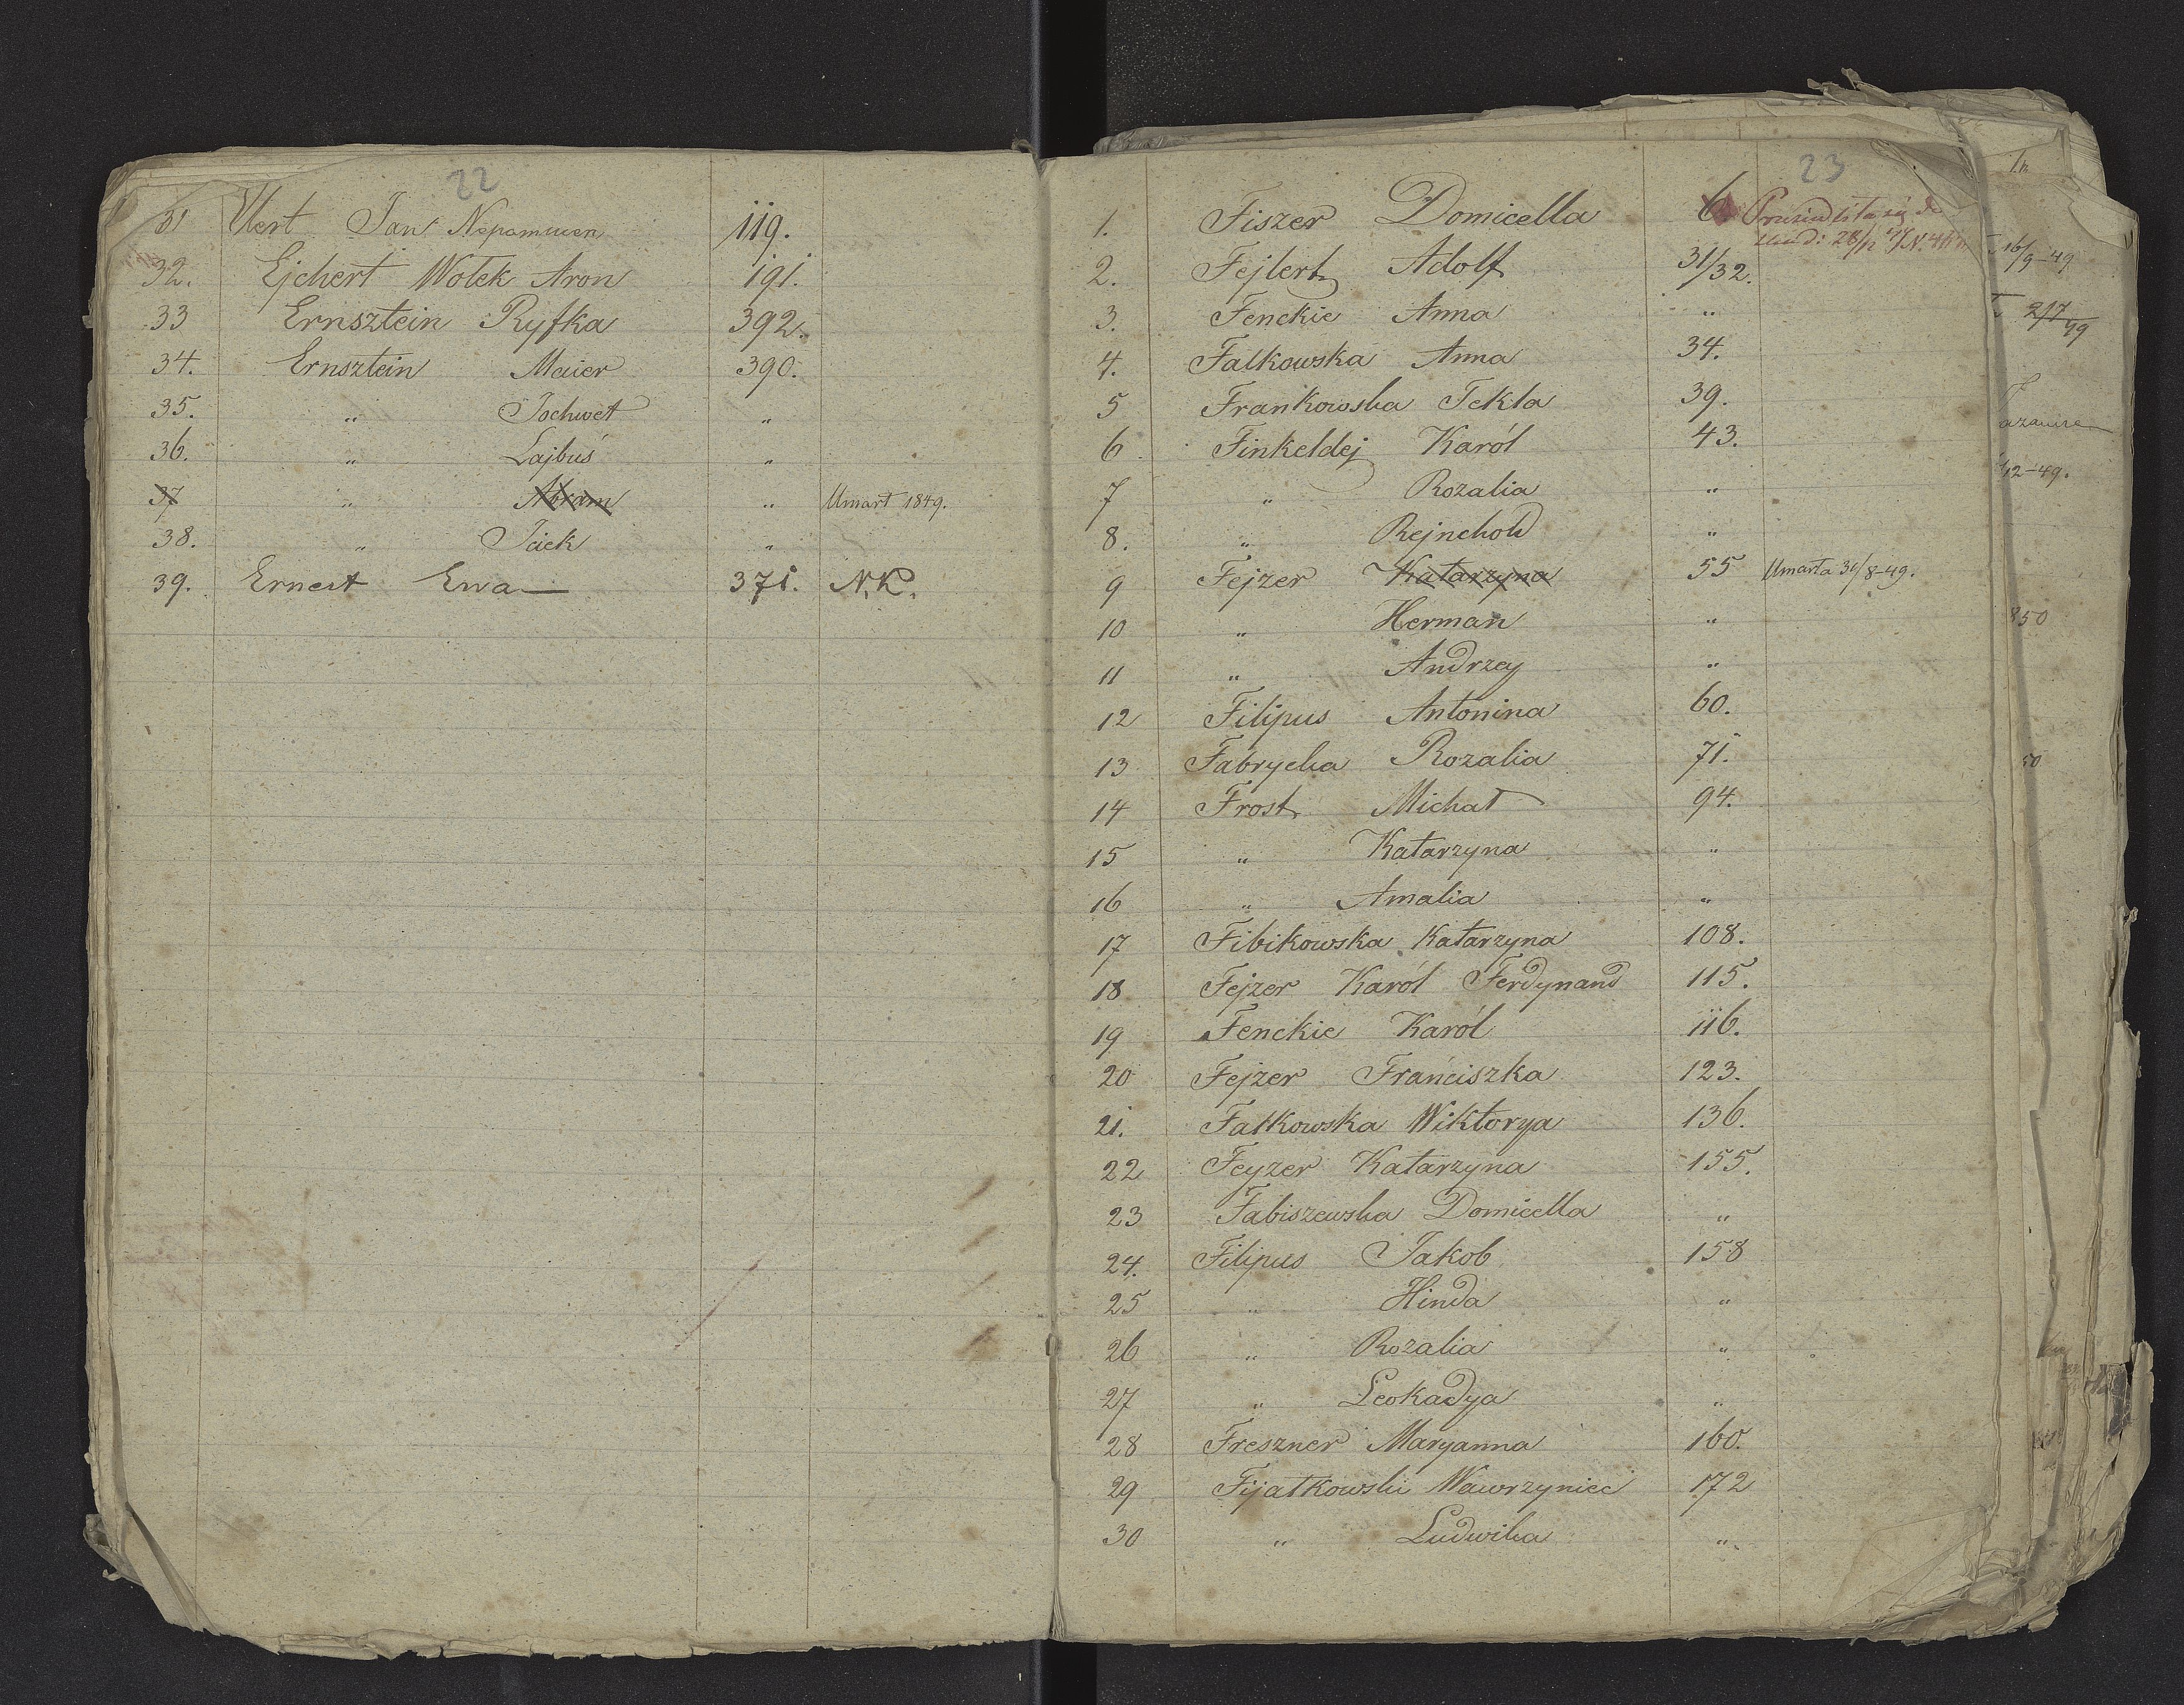 22
31 Ulert Jan Nepomucen 119.
32. Ejchert Wolek Aron 191.
33 Ernsztein Ryfka 392.
34. Ernsztein Maier 390.
35. " Jochwet "
36. " Lajbuś "
37 " Abram " Umarł 1849.
38. " Icek "
39. Ernest Ewa 371. N.K.
23
1. Fiszer Domicella 6
2. Fejlert Adolf 31/32.
3. Fenckie Anna "
4. Falkowska Anna 34.
5 Frankowska Tekla 39.
6 Finkeldej Karól 43.
7 " Rozalia "
8. " Rejnhold "
9 Fejzer Katarzyna 55 Umarła 31/8-49.
10 " Herman "
11 " Andrzey "
12 Filipus Antonina 60.
13 Fabrycka Rozalia 71.
14 Frost Michał 94.
15 " Katarzyna "
16 " Amalia "
17 Fibikowska Katarzyna 108.
18 Fejzer Karól Ferdynand 115.
19 Fenckie Karól 116.
20 Fejzer Franciszka 123.
21. Falkowska Wiktorya 136.
22 Feyzer Katarzyna 155.
23 Fabiszewska Domicella "
24. Filipus Jakob 158
25 " Hinda "
26 " Rozalia "
27 " Leokadya "
28 Freszner Maryanna 160.
29 Fijałkowski Wawrzyniec 172
30 " Ludwika "
16/9-49
2/7 49
12-49.
850
50